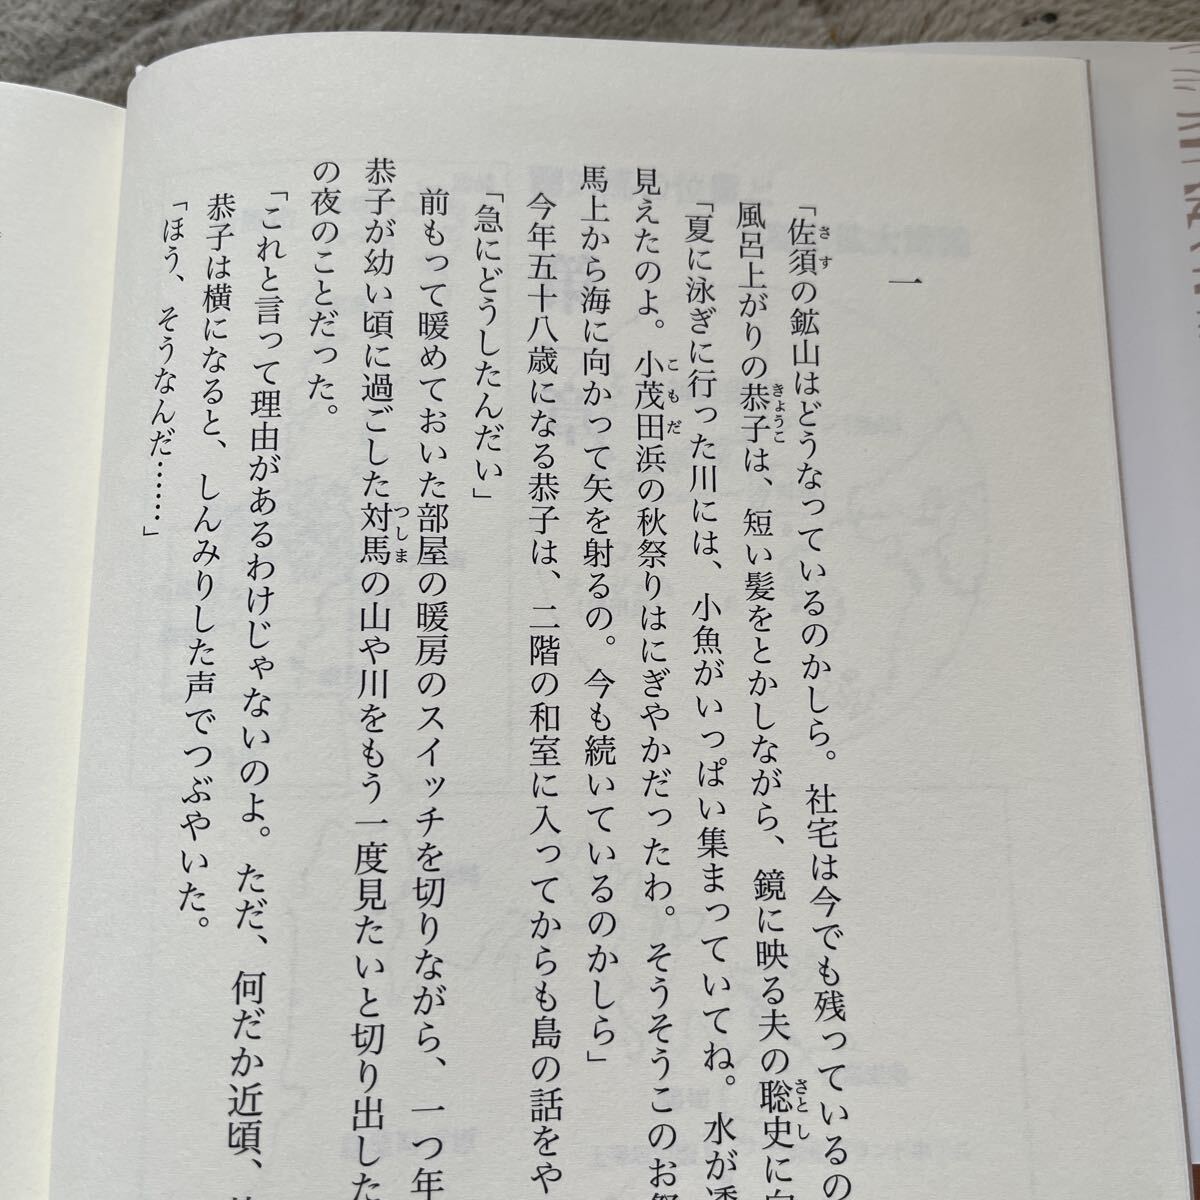 一
「佐須の鉱山はどうなっているのかしら。社宅は今でも残っているの
風呂上がりの恭子は、短い髪をとかしながら、鏡に映る夫の聡史に
「夏に泳ぎに行った川には、小魚がいっぱい集まっていてね。水が
見えたのよ。小茂田浜の秋祭りはにぎやかだったわ。そうそうこのお
馬上から海に向かって矢を射るの。今も続いているのかしら」
今年五十八歳になる恭子は、二階の和室に入ってからも島の話をや
「急にどうしたんだい」
前もって暖めておいた部屋の暖房のスイッチを切りながら、一つ年
恭子が幼い頃に過ごした対馬の山や川をもう一度見たいと切り出した
の夜のことだった。
「これと言って理由があるわけじゃないのよ。ただ、何だか近頃、
恭子は横になると、しんみりした声でつぶやいた。
「ほう、そうなんだ……」